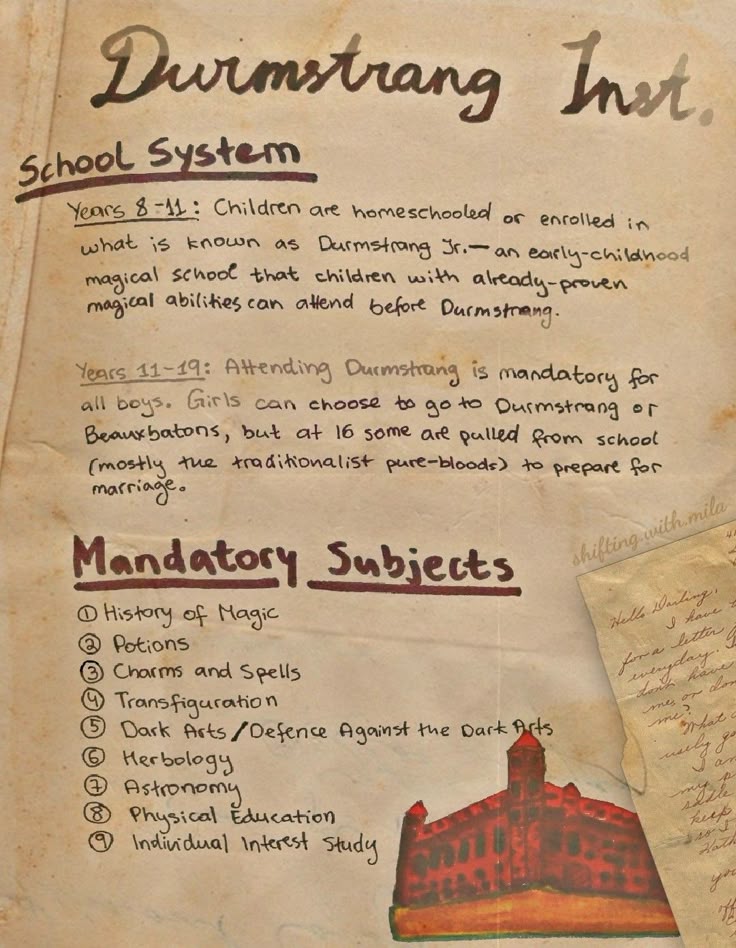 Durmstrang Inst.
School System
Years 8-11: Children are homeschooled or enrolled in
what is known as Durmstrang Jr.— an early-childhood
magical school that children with already-proven
magical abilities can attend before Durmstrang.
Years 11-19: Attending Durmstrang is mandatory for
all boys. Girls can choose to go to Durmstrang or
Beauxbatons, but at 16 some are pulled from school
(mostly the traditionalist pure-bloods) to prepare for
marriage.
shifting.with.mila
Mandatory Subjects
① History of Magic
② Potions
③ Charms and Spells
④ Transfiguration
⑤ Dark Arts/Defence Against the Dark Arts
⑥ Herbology
⑦ Astronomy
⑧ Physical Education
⑨ Individual Interest Study
Hello Darling,
I have
for a letter
everyday.
don't have
mes or
me?
What
usely
I am
my
saddle
keep